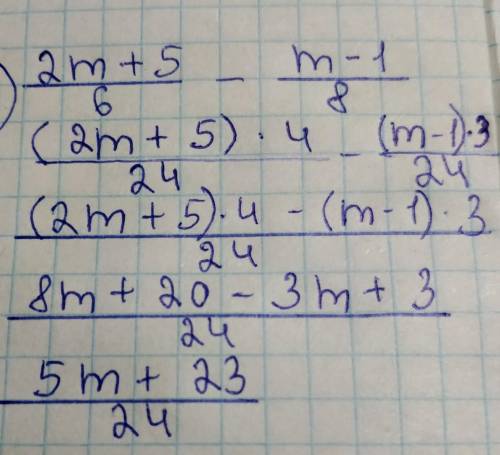 ) (2m + 5)/6 - (m - 1)/8
((2m + 5) · 4)/24 - ((m-1)·3)/24
((2m + 5)·4 - (m-1)·3)/24
(8m + 20 - 3m + 3)/24
(5m + 23)/24